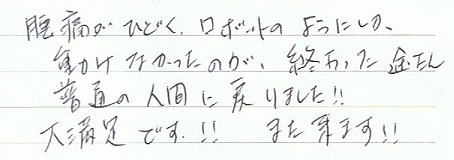 腰痛がひどく、ロボットのようにしか、
動けなかったのが、終わった途たん
普通の人間に戻りました!!
大満足です.!! また来ます!!